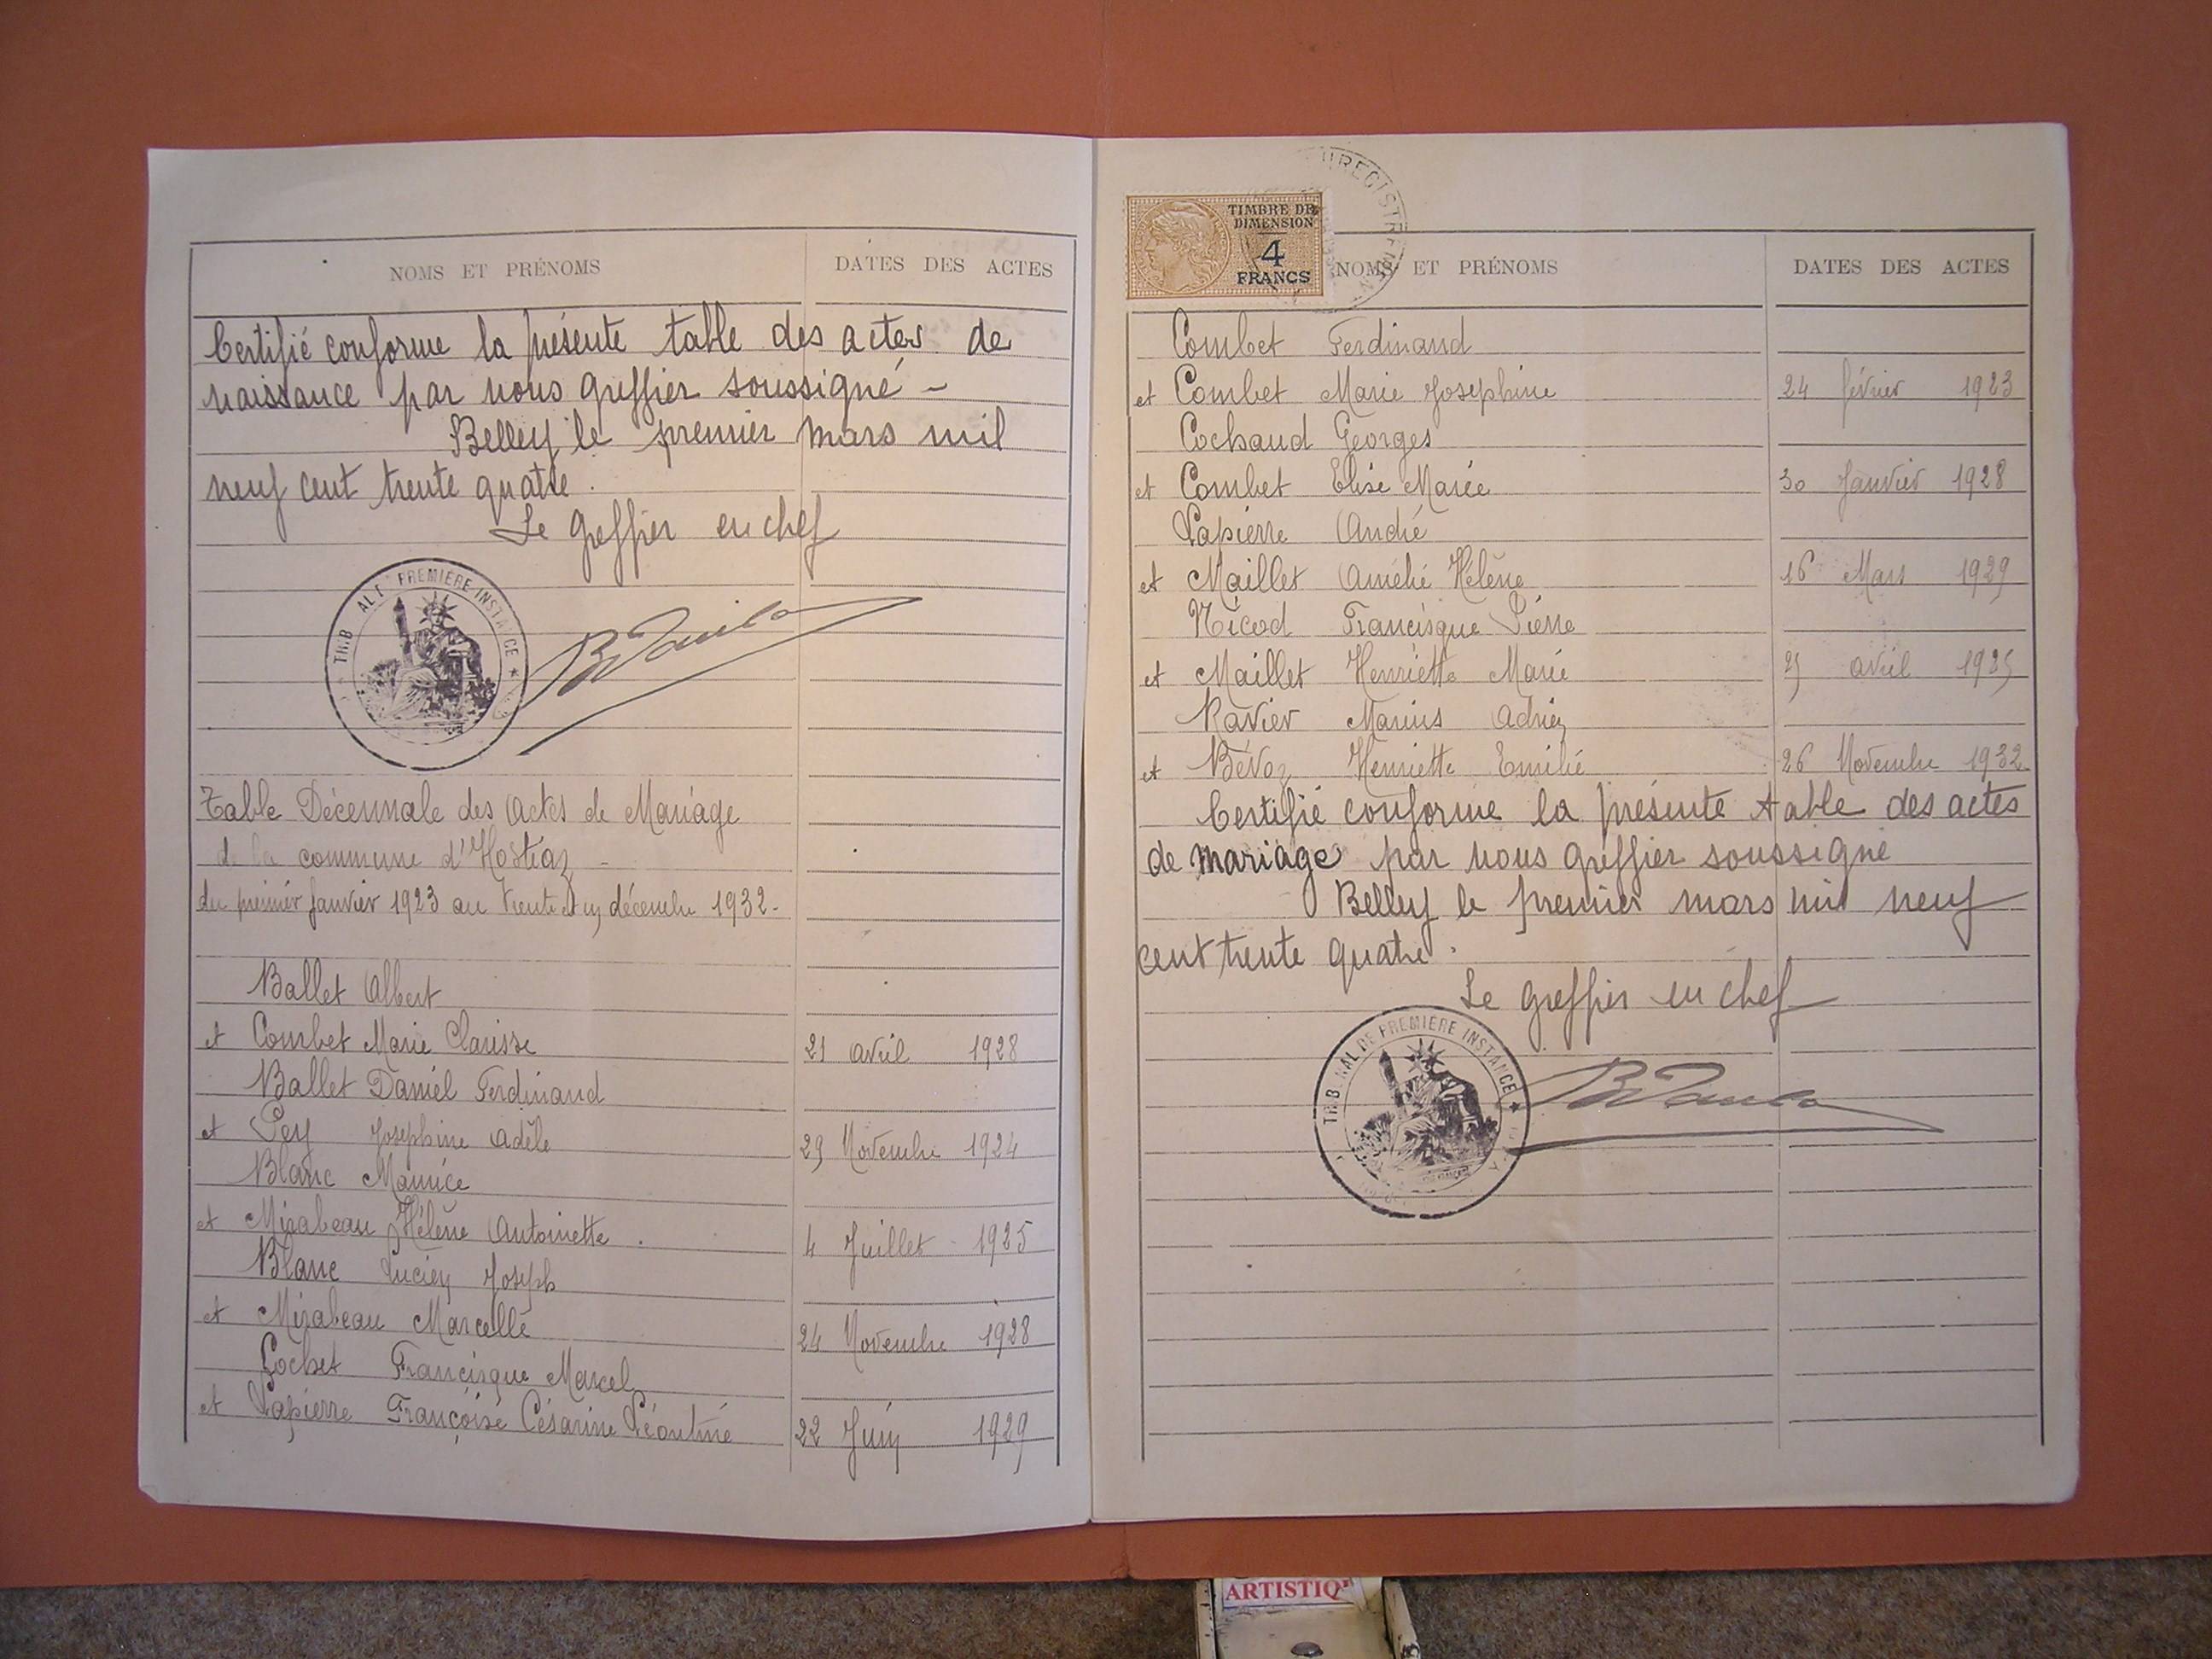 NOMS ET PRÉNOMS
DATES DES ACTES
Certifié conforme la présente table des actes de
naissance par nous greffier soussigné -
Belley le premier mars mil
neuf cent trente quatre.
Le greffier en chef
PREMIÈRE INSTANCE
Table Décennale des Actes de Mariage
de la commune d'Hostiaz -
du premier Janvier 1923 au trente et un décembre 1932-
Ballet Albert
et Combet Marie Clarisse 21 avril 1928
Ballet Daniel Ferdinand
et Pey Joséphine Adèle 29 Novembre 1924
Blanc Maurice
et Mirabeau Hélène Antoinette. 4 Juillet 1925
Blanc Lucien Joseph
et Mirabeau Marcelle 24 Novembre 1928
Cochet Francisque Marcel
et Lapierre Françoise Césarine Léontine 22 Juin 1929
TIMBRE DE
DIMENSION
4
FRANCS
NOMS ET PRÉNOMS
DATES DES ACTES
Combet Ferdinand
et Combet Marie Josephine 24 février 1923
Cochaud Georges
et Combet Elise Marie 30 Janvier 1928
Lapierre André
et Maillet Amélie Hélène 16 Mars 1929
Nicod Francisque Pierre
et Maillet Henriette Marie avril 1925
Ravier Marius Adrien
et Bévoz Henriette Emilie 26 Novembre 1932
Certifié conforme la présente table des actes
de mariage par nous greffier soussigné
Belley le premier mars mil neuf
cent trente quatre.
Le greffier en chef
TRIBUNAL DE PREMIÈRE INSTANCE
ARTISTIQ